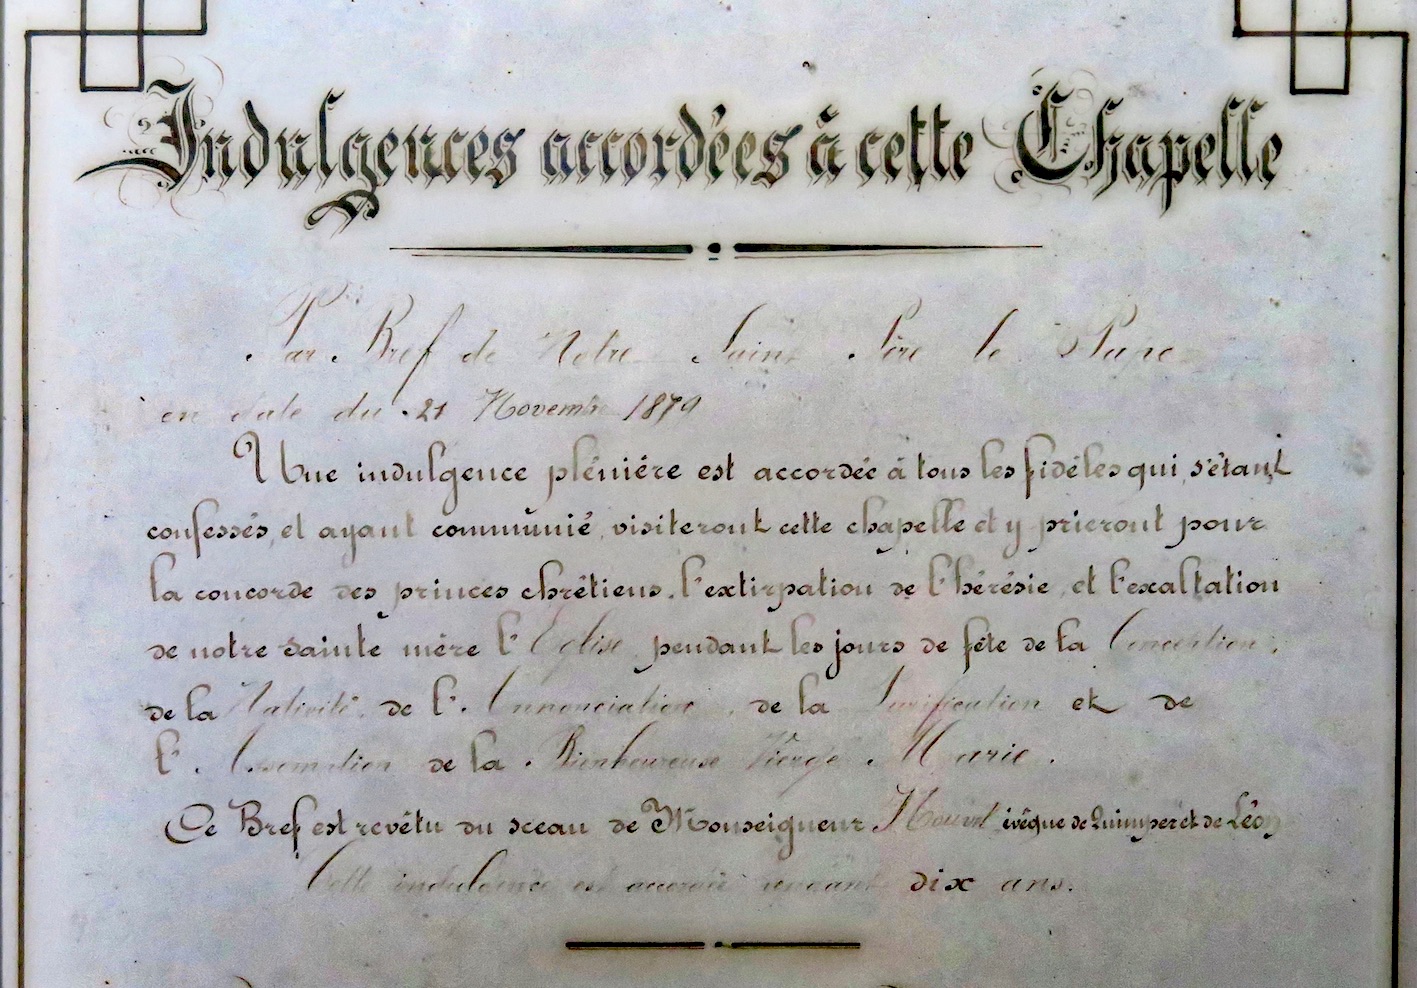 Indulgences accordées à cette Chapelle
Par Bref de Notre Saint Père le Pape
en date du 21 Novembre 1879
Une indulgence plénière est accordée à tous les fidèles qui, s'étant
confessés, et ayant communié, visiteront cette chapelle et y prieront pour
la concorde des princes chrétiens, l'extirpation de l'hérésie, et l'exaltation
de notre sainte mère l'Eglise, pendant les jours de fête de la Conception,
de la Nativité, de l'Annonciation, de la Purification et de
l'Assomption de la Bienheureuse Vierge Marie.
Ce Bref est revêtu du sceau de Monseigneur Nouvel évêque de Quimper et de Léon
Cette indulgence est accordée pendant dix ans.